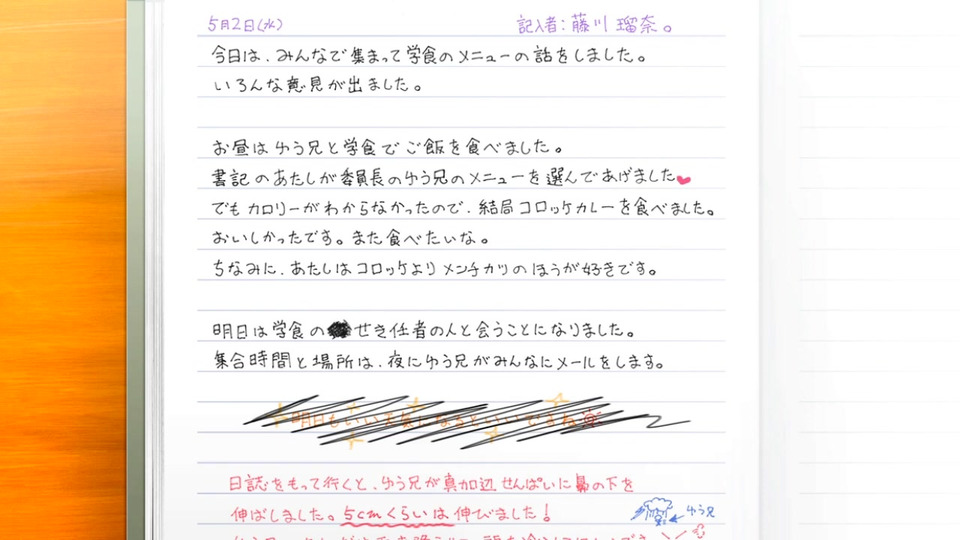 5月2日(水) 記入者：藤川 瑠奈。
今日は、みんなで集まって学食のメニューの話をしました。
いろんな意見が出ました。
お昼はゆう兄と学食でご飯を食べました。
書記のあたしが委員長のゆう兄のメニューを選んであげました
でもカロリーがわからなかったので、結局コロッケカレーを食べました。
おいしかったです。また食べたいな。
ちなみに、あたしはコロッケよりメンチカツのほうが好きです。
明日は学食のせき任者の人と会うことになりました。
集合時間と場所は、夜にゆう兄がみんなにメールをします。
明日もいい天気になるといいですね
日誌をもって行くと、ゆう兄が真加辺せんぱいに鼻の下を
伸ばしました。5cmくらいは伸びました！
ゆう兄